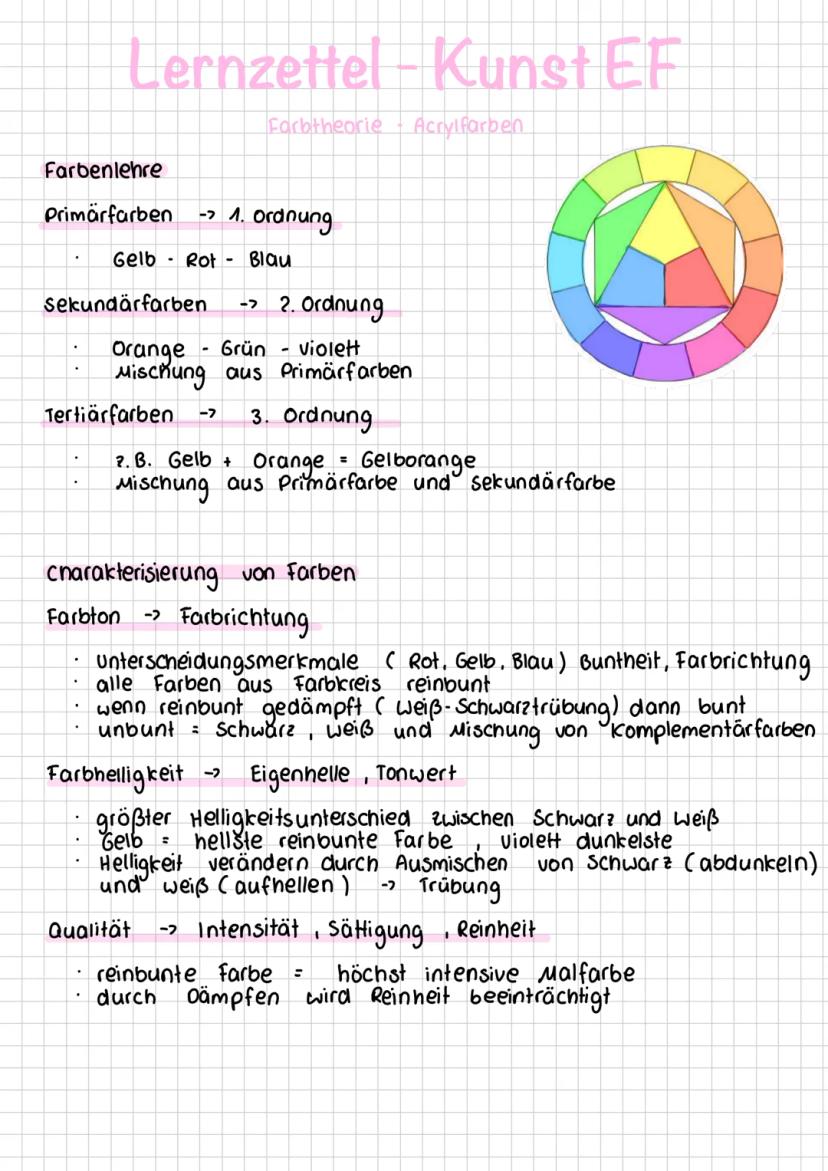 Lernzettel - Kunst EF
Farbtheorie - Acrylfarben
Farbenlehre
Primärfarben -> 1. Ordnung
· Gelb - Rot - Blau
Sekundärfarben -> 2. Ordnung
· Orange - Grün - violett
· Mischung aus Primärfarben
Tertiärfarben -> 3. Ordnung
· z.B. Gelb + Orange = Gelborange
· Mischung aus Primärfarbe und Sekundärfarbe
Charakterisierung von Farben
Farbton -> Farbrichtung
· Unterscheidungsmerkmale ( Rot, Gelb, Blau ) Buntheit, Farbrichtung
· alle Farben aus Farbkreis reinbunt
· wenn reinbunt gedämpft ( Weiß- Schwarztrübung) dann bunt
· unbunt = Schwarz , weiß und Mischung von Komplementärfarben
Farbhelligkeit -> Eigenhelle , Tonwert
· größter Helligkeitsunterschied zwischen Schwarz und Weiß
· Gelb = hellste reinbunte Farbe , violett dunkelste
· Helligkeit verändern durch Ausmischen von Schwarz ( abdunkeln)
und weiß ( aufhellen ) -> Trübung
Qualität -> Intensität , Sättigung , Reinheit
· reinbunte Farbe = höchst intensive Malfarbe
· durch Dämpfen wird Reinheit beeinträchtigt